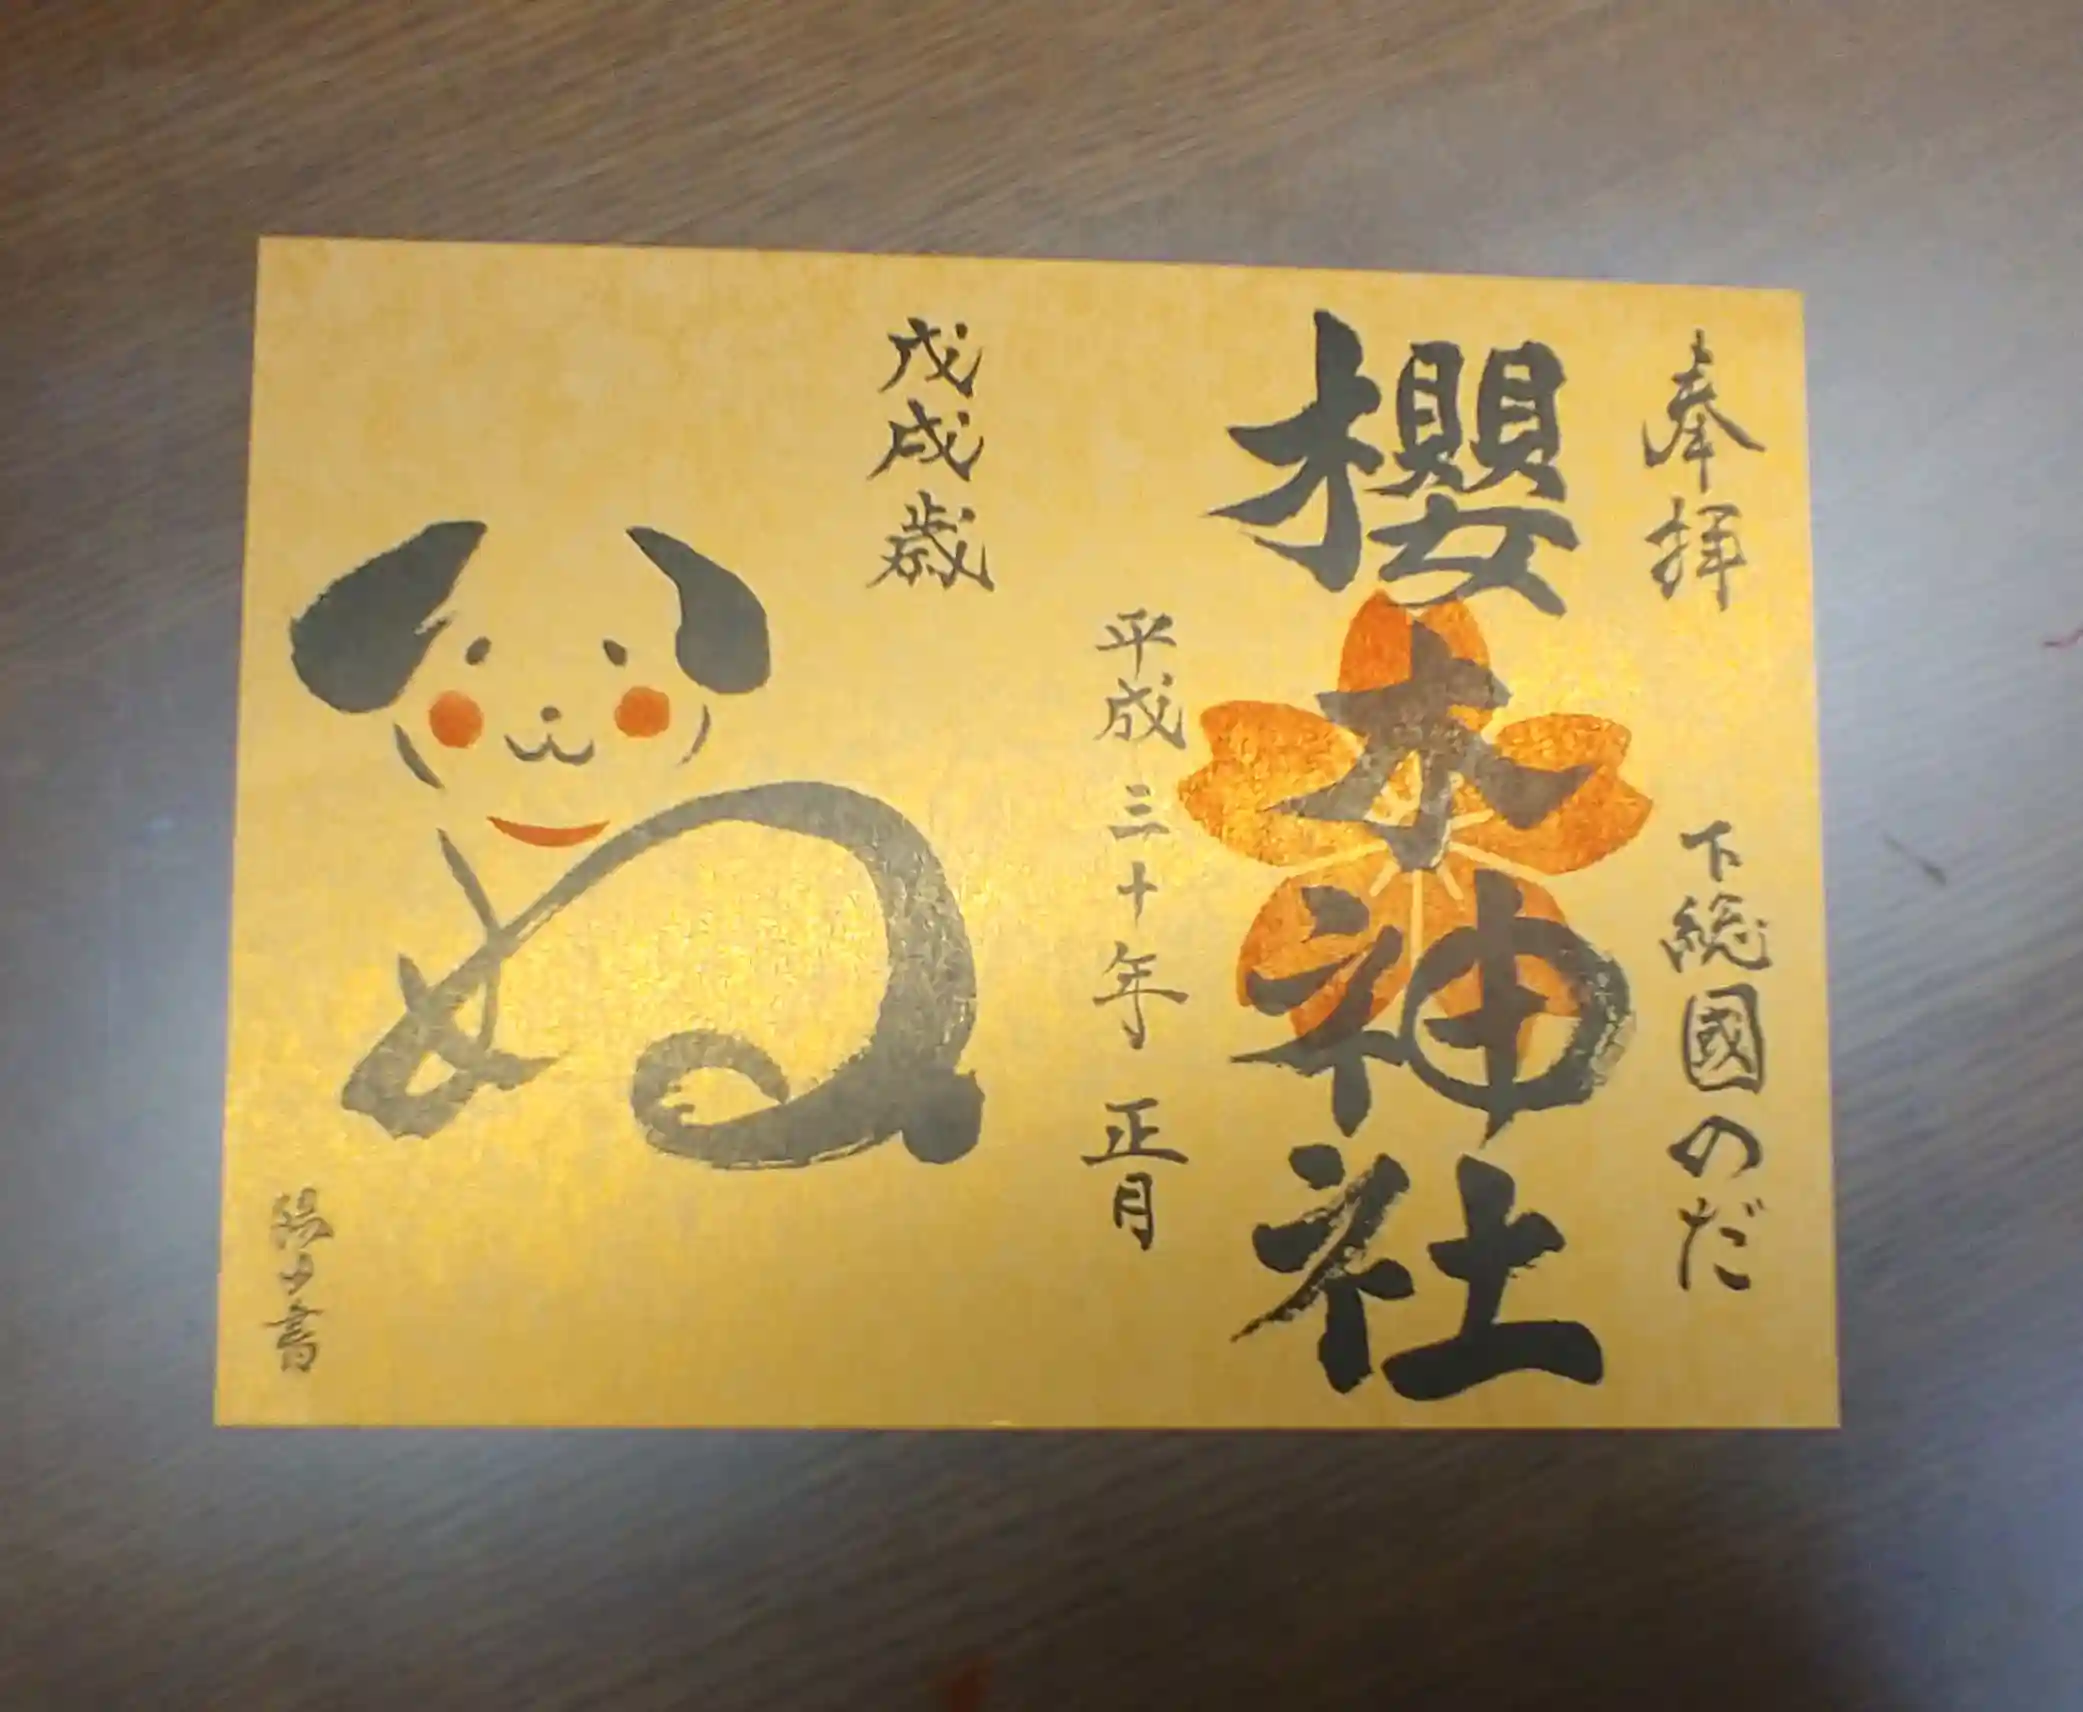 奉拝
下総國のだ
櫻木神社
平成三十年正月
戊戌歳
いぬ
書